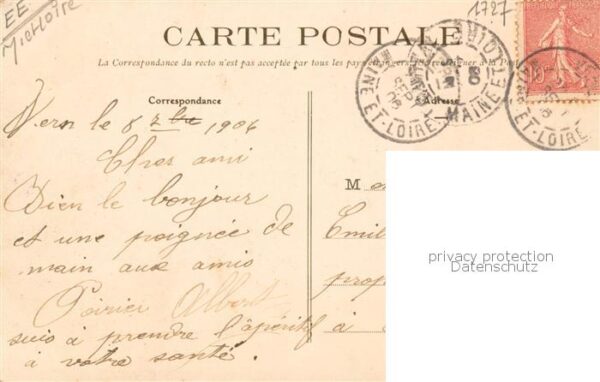 EE
1727
CARTE POSTALE
La Correspondance du recto n'est pas acceptée par tous les pays étrangers
Correspondance
Adresse
MAINE ET-LOIRE
MAINE ET LOIRE
ET-LOIRE
Vern le 8 7bre 1906
Cher ami
Bien le bonjour
et une poignée de
main aux amis
Poirier Albert
suis à prendre l'apéritif
à votre santé.
M
Emil
prop
à
privacy protection
Datenschutz